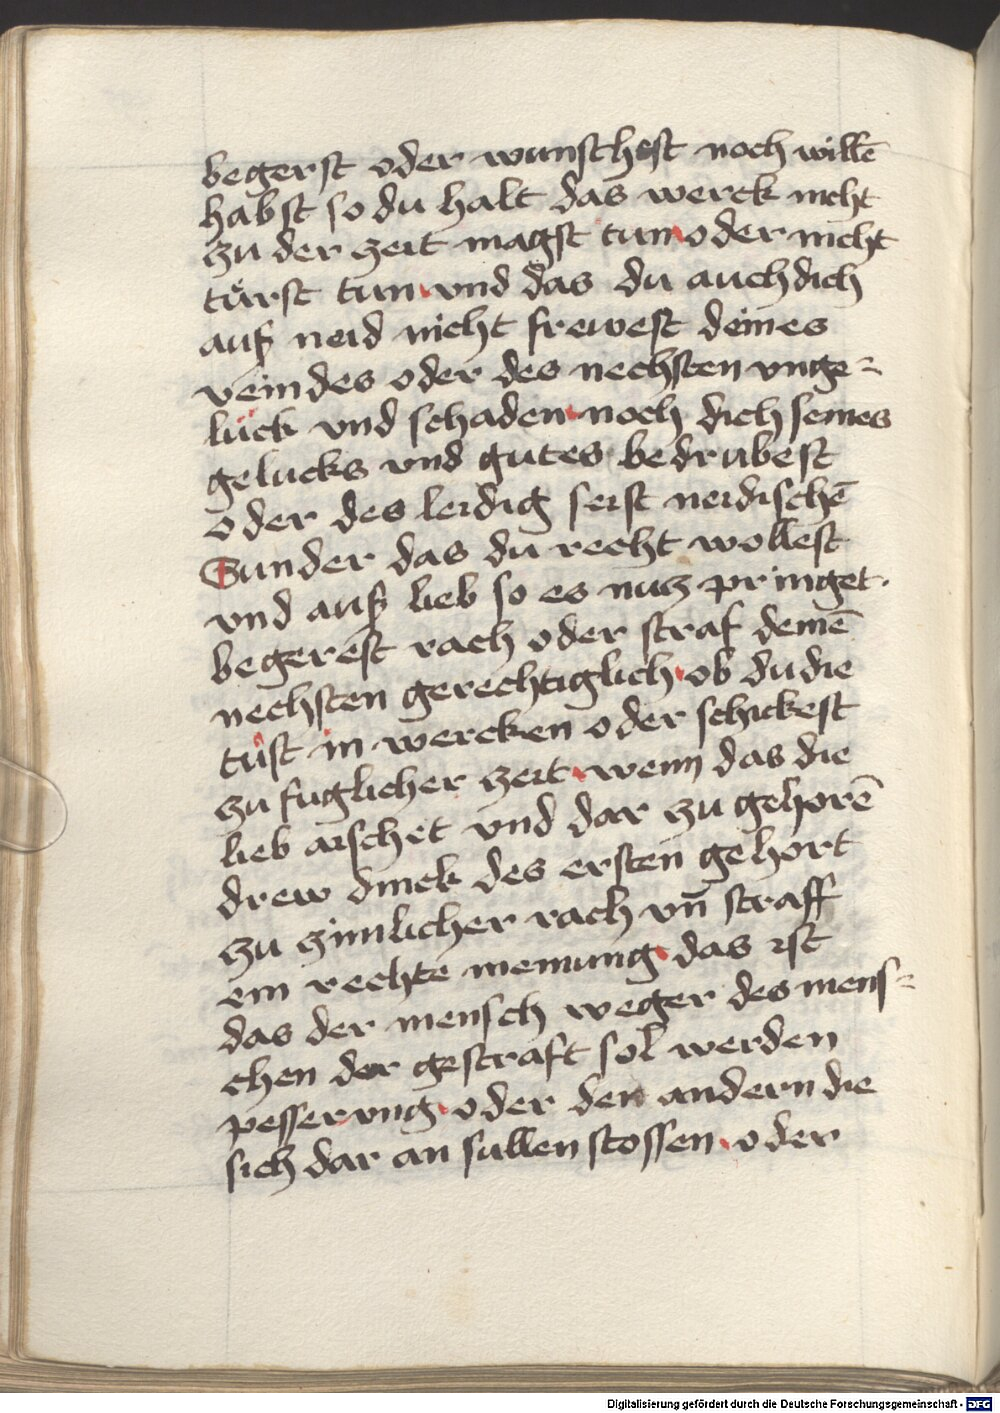 begerst oder wunschest noch willē
habst so du halt das werck nicht
zu der zeit magst tun oder nicht
türst tun vnd das du auch dich
auß neid nicht frewest deines
veindes oder des nechsten vnge-
lück vnd schaden noch dich seines
gelucks vnd gutes bedrubest
oder des leidig seist neidischē
Sunder das du recht wollest
vnd auß lieb so es nucz pringet.
begerest rach oder straf deinē
nechsten gerechtiglich ob du die
tůst in wercken oder schickest
zu fuglicher zeit wenn das die
lieb aischet vnd dar zu gehorē
drew dinck des ersten gehort
zu zimlicher rach vn̄ straff
ein rechte meinung das ist
das der mensch weger des mens-
chen der gestraft sol werden
pesserung oder den andern die
sich dar an sullen stossen oder
Digitalisierung gefördert durch die Deutsche Forschungsgemeinschaft - DFG